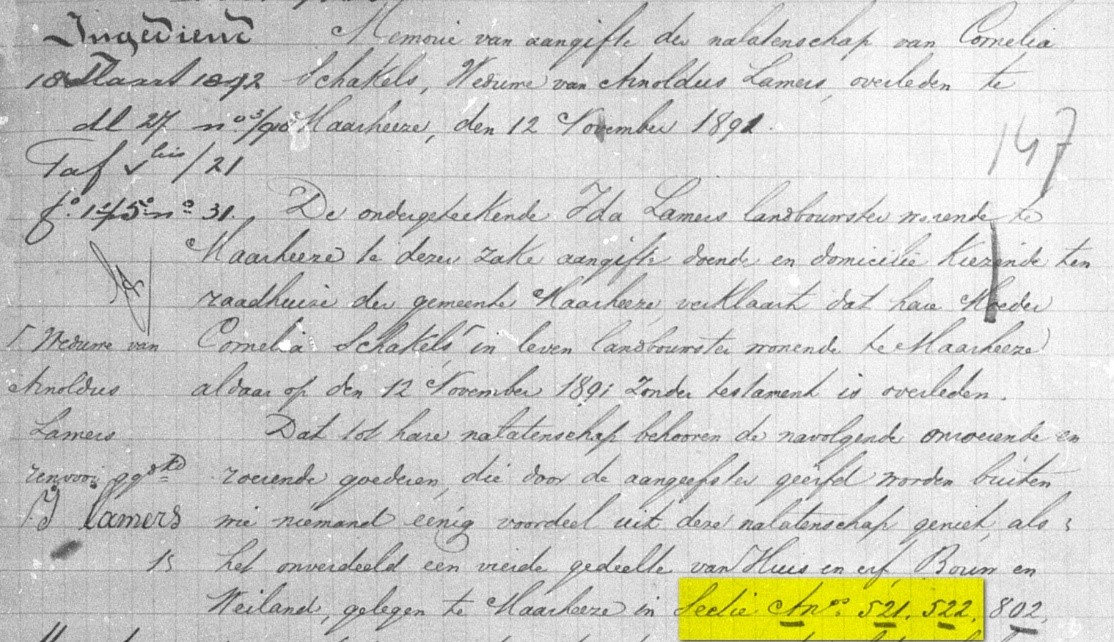 Ingediend
18 Maart 1892
dl 27 no 3/910
Taf v bis/21
fo. 145 no 31.
147
Memorie van aangifte der nalatenschap van Cornelia
Schakels, Weduwe van Arnoldus Lamers, overleden te
Maarheeze, den 12 November 1891.
De ondergeteekende Ida Lamers landbouwster wonende te
Maarheeze te dezer zake aangifte doende en domicilie kiezende ten
raadhuize der gemeente Maarheeze, verklaart dat hare Moeder
Cornelia Schakels Γ in leven landbouwster wonende te Maarheeze
aldaar op den 12 November 1891 zonder testament is overleden.
Γ Weduwe van
Arnoldus
Lamers
renvooi ggd
I Lamers
Dat tot hare nalatenschap behooren de navolgende onroerende en
roerende goederen, die door de aangeefster geërfd worden buiten
wie niemand eenig voordeel uit deze nalatenschap geniet, als;
1s het onverdeeld een vierde gedeelte van Huis en erf, Bouw en
Weiland, gelegen te Maarheeze in Sectie A nos 521, 522, 802,